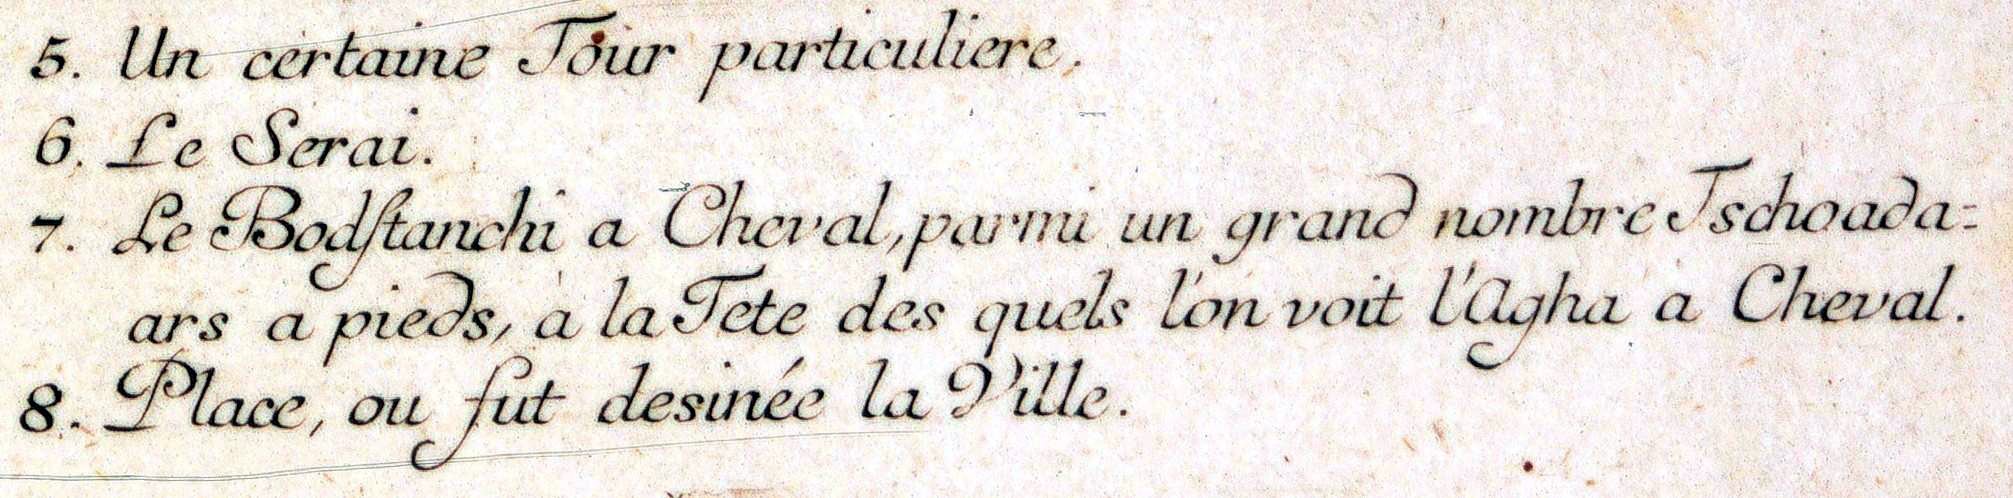 5. Un certaine Tour particuliere.
6. Le Serai.
7. Le Bodſtanchi a Cheval, parmi un grand nombre Tschoada=
ars a pieds, à la Tete des quels l'on voit l'Agha a Cheval.
8. Place, ou fut desinée la Ville.